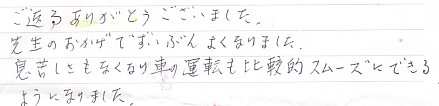 ご返る ありがとうございました。
先生のおかげでずいぶん よくなりました。
息苦しさもなくなり車の運転も比較的スムーズにできる
ようになりました。